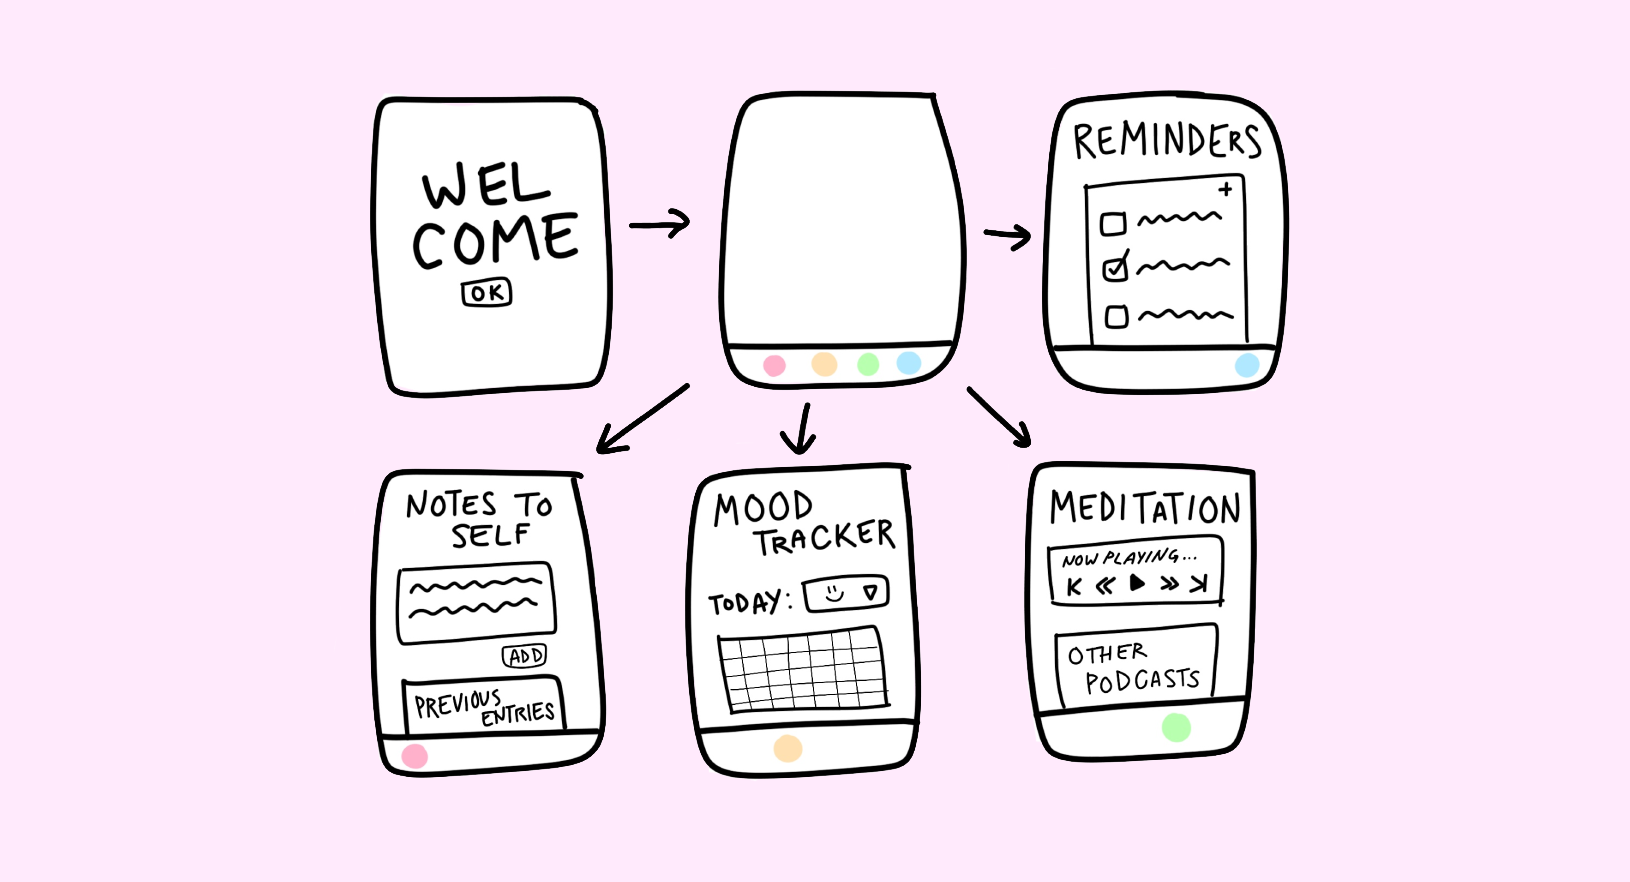 WEL
COME
OK
REMINDERS
+
NOTES TO
SELF
ADD
PREVIOUS
ENTRIES
MOOD
TRACKER
TODAY:
MEDITATION
NOW PLAYING...
OTHER
PODCASTS